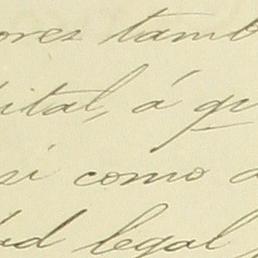 ores tamb
ital, á qu
si como a
ad legal